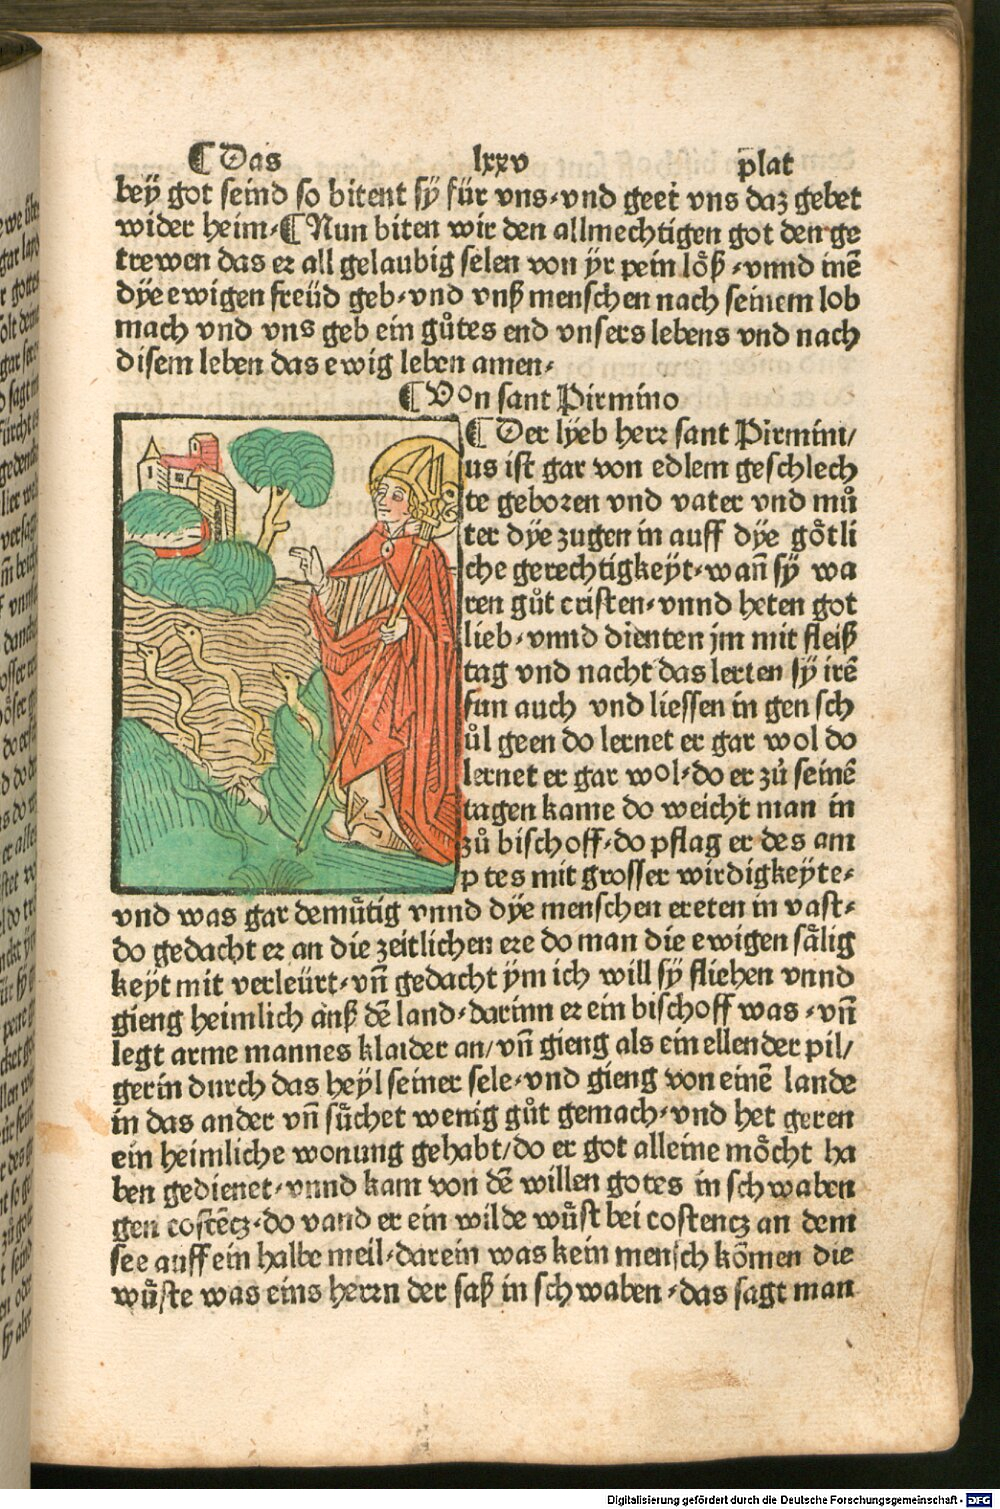 ¶ Das lxxv plat
bey got seind so bitent sÿ für vns·vnd geet vns daz gebet
wider heim·¶ Nun biten wir den allmechtigen got den ge
trewen das er all gelaubig selen von ÿr pein lo᷑ß·vnnd inē
dÿe ewigen freüd geb·vnd vnß menschen nach seinem lob
mach vnd vns geb ein gůtes end vnsers lebens vnd nach
disem leben das ewig leben amen·
¶ Von sant Pirmino
¶ Der lÿeb herr sant Pirmini/
us ist gar von edlem geschlech
te geboren vnd vater vnd mů
ter dÿe zugen in auff dÿe gȯtli
che gerechtigkeÿt·wañ sÿ wa
ren gůt cristen·vnnd heten got
lieb·vnnd dienten jm mit fleiß
tag vnd nacht das lerten sÿ irē
sun auch vnd liessen in gen sch
ůl geen do lernet er gar wol do
lernet er gar wol·do er zů seinē
tagen kame do weicht man in
zů bischoff·do pflag er des am
ptes mit grosser wirdigkeÿte·
vnd was gar demůtig vnnd dÿe menschen ereten in vast·
do gedacht er an die zeitlichen ere do man die ewigen sa᷑lig
keÿt mit verleürt·vñ gedacht ÿm ich will sÿ fliehen vnnd
gieng heimlich auß dē land·darinn er ein bischoff was·vñ
legt arme mannes klaider an/vñ gieng als ein ellender pil/
gerin durch das heÿl seiner sele·vnd gieng von einē lande
in das ander vñ sůchet wenig gůt gemach·vnd het geren
ein heimliche wonung gehabt/do er got alleine mȯcht ha
ben gedienet·vnnd kam von dē willen gotes in schwaben
gen costēcz·do vand er ein wilde wůst bei costencz an dem
see auff ein halbe meil·darein was kein mensch kȯmen die
wůste was eins herrn der saß in schwaben·das sagt man
Digitalisierung gefördert durch die Deutsche Forschungsgemeinschaft - DFG